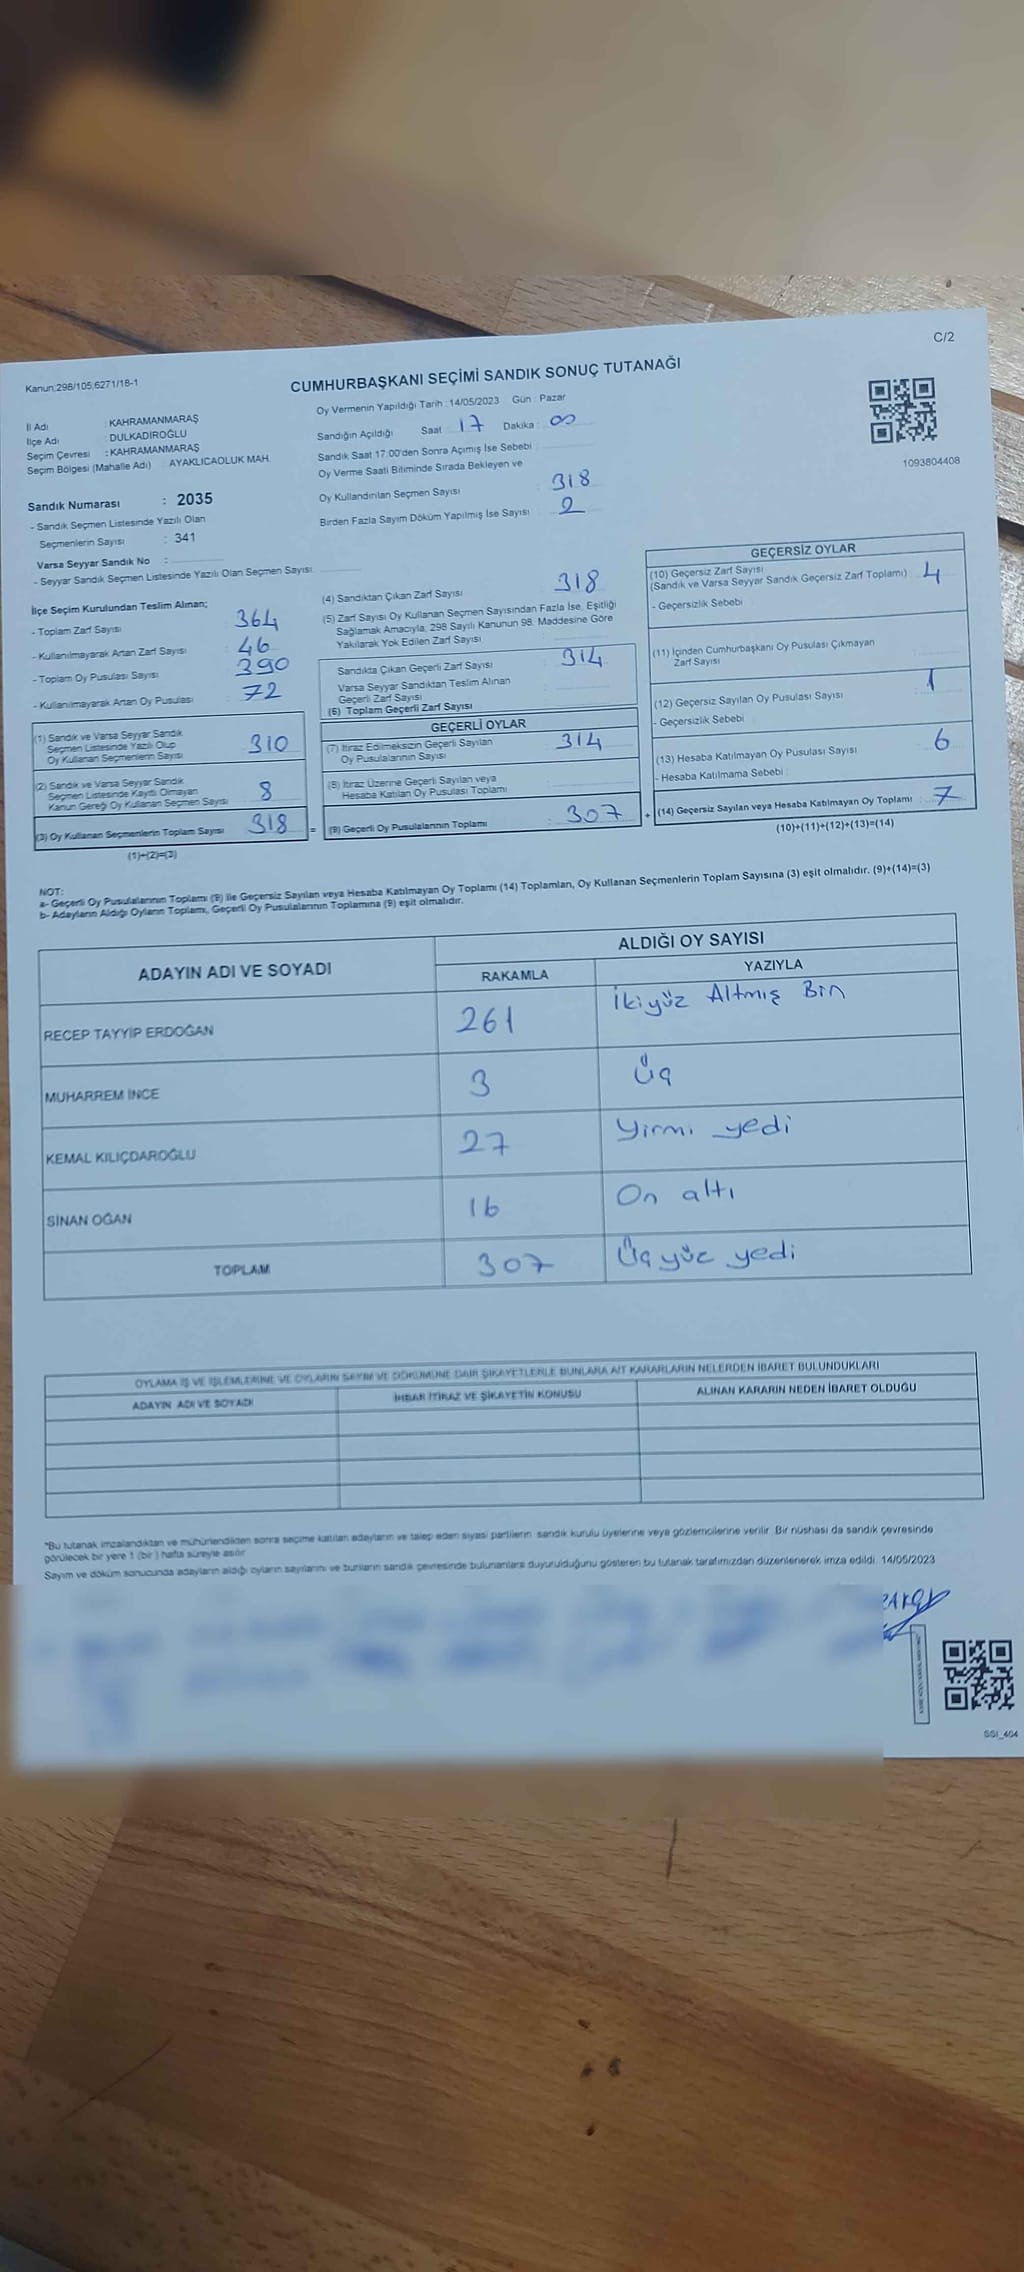 C/2
Kanun:298/105,6271/18-1
CUMHURBAŞKANI SEÇİMİ SANDIK SONUÇ TUTANAĞI
İl Adı : KAHRAMANMARAŞ
İlçe Adı : DULKADİROĞLU
Seçim Çevresi : KAHRAMANMARAŞ
Seçim Bölgesi (Mahalle Adı) : AYAKLICAOLUK MAH.
Sandık Numarası : 2035
- Sandık Seçmen Listesinde Yazılı Olan
Seçmenlerin Sayısı : 341
Varsa Seyyar Sandık No :
- Seyyar Sandık Seçmen Listesinde Yazılı Olan Seçmen Sayısı:
Oy Vermenin Yapıldığı Tarih : 14/05/2023 Gün : Pazar
Sandığın Açıldığı Saat : 17 Dakika : 00
Sandık Saat 17:00'den Sonra Açımış İse Sebebi :
Oy Verme Saati Bitiminde Sırada Bekleyen ve
Oy Kullandırılan Seçmen Sayısı : 318
Birden Fazla Sayım Döküm Yapılmış İse Sayısı : 2
1093804408
İlçe Seçim Kurulundan Teslim Alınan;
- Toplam Zarf Sayısı : 364
- Kullanılmayarak Artan Zarf Sayısı : 46
- Toplam Oy Pusulası Sayısı : 390
- Kullanılmayarak Artan Oy Pusulası : 72
(1) Sandık ve Varsa Seyyar Sandık
Seçmen Listesinde Yazılı Olup
Oy Kullanan Seçmenlerin Sayısı : 310
(2) Sandık ve Varsa Seyyar Sandık
Seçmen Listesinde Kayıtlı Olmayan
Kanun Gereği Oy Kullanan Seçmen Sayısı : 8
(3) Oy Kullanan Seçmenlerin Toplam Sayısı : 318 =
(1)+(2)=(3)
(4) Sandıktan Çıkan Zarf Sayısı : 318
(5) Zarf Sayısı Oy Kullanan Seçmen Sayısından Fazla İse, Eşitliği
Sağlamak Amacıyla, 298 Sayılı Kanunun 98. Maddesine Göre
Yakılarak Yok Edilen Zarf Sayısı :
Sandıkta Çıkan Geçerli Zarf Sayısı : 314
Varsa Seyyar Sandıktan Teslim Alınan
Geçerli Zarf Sayısı
(6) Toplam Geçerli Zarf Sayısı
GEÇERLİ OYLAR
(7) İtiraz Edilmeksizin Geçerli Sayılan
Oy Pusulalarının Sayısı : 314
(8) İtiraz Üzerine Geçerli Sayılan veya
Hesaba Katılan Oy Pusulası Toplamı :
(9) Geçerli Oy Pusulalarının Toplamı : 307 +
GEÇERSİZ OYLAR
(10) Geçersiz Zarf Sayısı
(Sandık ve Varsa Seyyar Sandık Geçersiz Zarf Toplamı) : 4
- Geçersizlik Sebebi :
(11) İçinden Cumhurbaşkanı Oy Pusulası Çıkmayan
Zarf Sayısı :
(12) Geçersiz Sayılan Oy Pusulası Sayısı : 1
- Geçersizlik Sebebi :
(13) Hesaba Katılmayan Oy Pusulası Sayısı : 6
- Hesaba Katılmama Sebebi :
(14) Geçersiz Sayılan veya Hesaba Katılmayan Oy Toplamı : 7
(10)+(11)+(12)+(13)=(14)
NOT:
a- Geçerli Oy Pusulalarının Toplamı (9) ile Geçersiz Sayılan veya Hesaba Katılmayan Oy Toplamı (14) Toplamları, Oy Kullanan Seçmenlerin Toplam Sayısına (3) eşit olmalıdır. (9)+(14)=(3)
b- Adayların Aldığı Oyların Toplamı, Geçerli Oy Pusulalarının Toplamına (9) eşit olmalıdır.
ADAYIN ADI VE SOYADI ALDIĞI OY SAYISI
RAKAMLA YAZIYLA
RECEP TAYYİP ERDOĞAN 261 İkiyüz Altmış Bin
MUHARREM İNCE 3 Üç
KEMAL KILIÇDAROĞLU 27 Yirmi yedi
SİNAN OĞAN 16 On altı
TOPLAM 307 Üçyüz yedi
OYLAMA İŞ VE İŞLEMLERİNE VE OYLARIN SAYIM VE DÖKÜMÜNE DAİR ŞİKAYETLERLE BUNLARA AİT KARARLARIN NELERDEN İBARET BULUNDUKLARI
ADAYIN ADI VE SOYADI İHBAR İTİRAZ VE ŞİKAYETİN KONUSU ALINAN KARARIN NEDEN İBARET OLDUĞU
*Bu tutanak imzalandıktan ve mühürlendikten sonra seçime katılan adayların ve talep eden siyasi partilerin sandık kurulu üyelerine veya gözlemcilerine verilir. Bir nüshası da sandık çevresinde
görülecek bir yere 1 (bir ) hafta süreyle asılır.
Sayım ve döküm sonucunda adayların aldığı oyların sayılarını ve bunların sandık çevresinde bulunanlara duyurulduğunu gösteren bu tutanak tarafımızdan düzenlenerek imza edildi. 14/05/2023
SSI_404